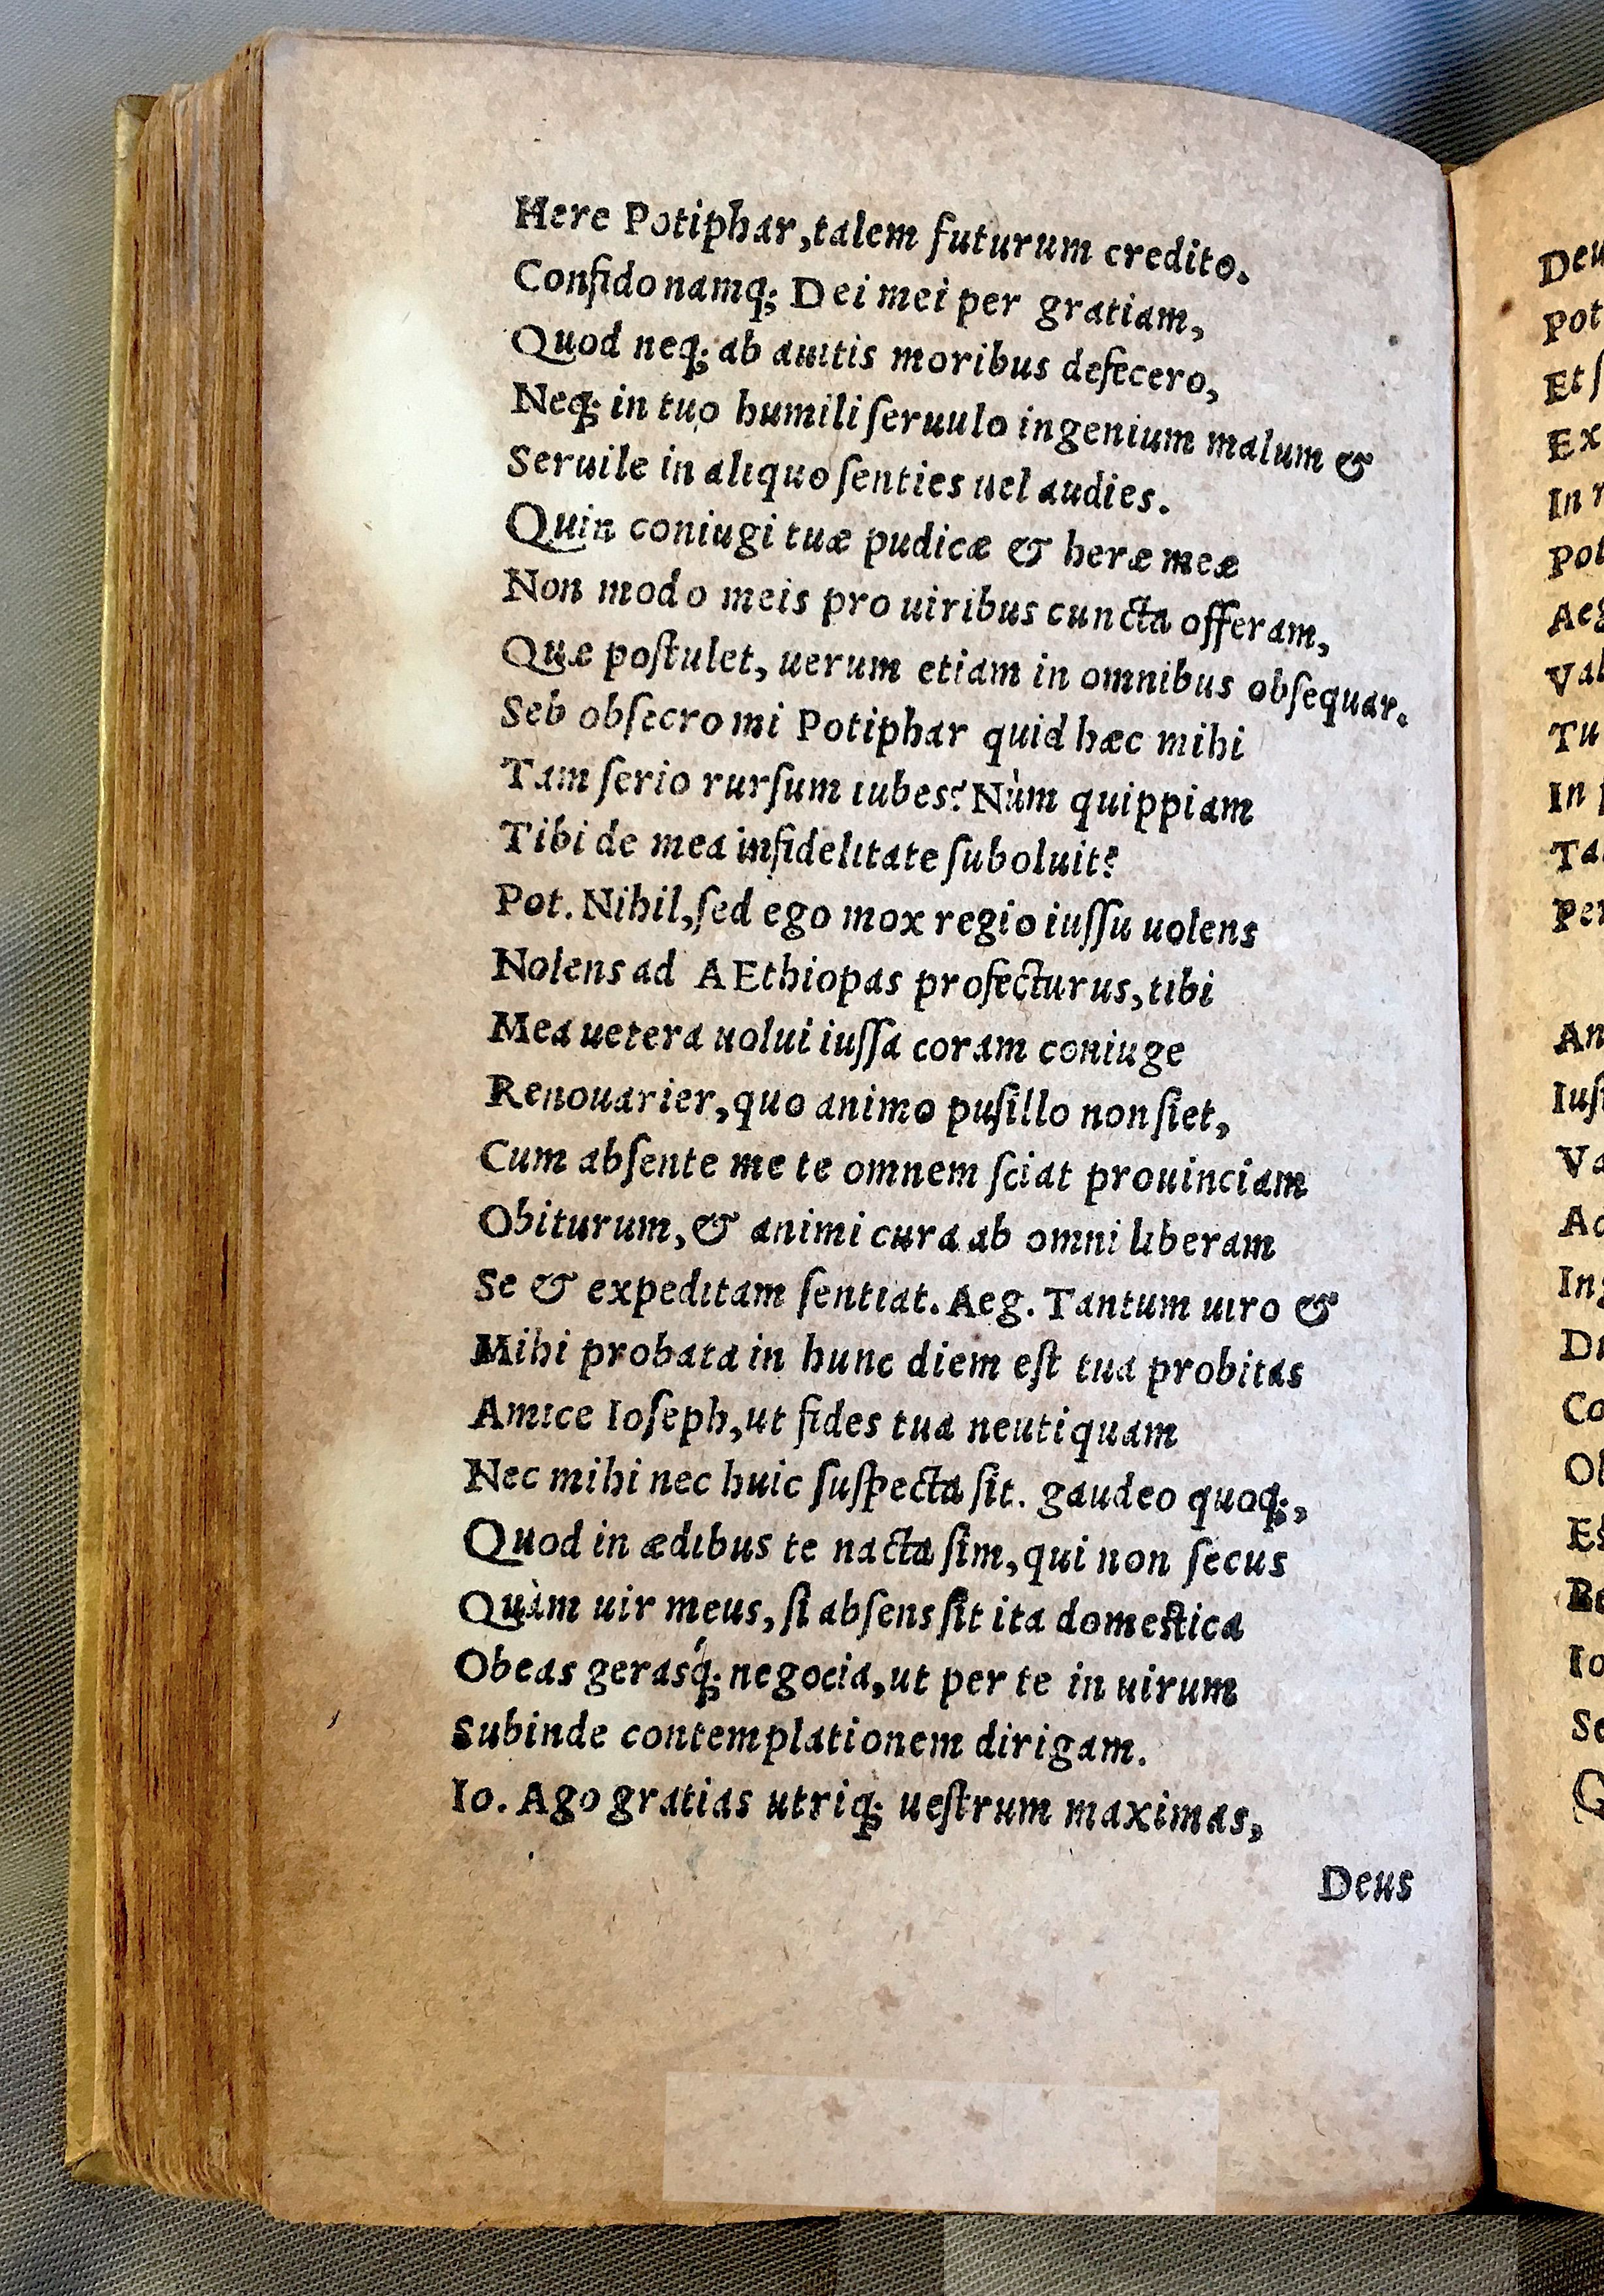 Here Potiphar, talem futurum credito.
Confido namq; Dei mei per gratiam,
Quod neq; ab auitis moribus defecero,
Neq; in tuo humili ſeruulo ingenium malum &
Seruile in aliquo ſenties uel audies.
Quin coniugi tuæ pudicæ & heræ meæ
Non modo meis pro uiribus cuncta offeram,
Quæ poſtulet, uerum etiam in omnibus obſequar.
Seb obſecro mi Potiphar quid hæc mihi
Tam ſerio rurſum iubes? Nùm quippiam
Tibi de mea infidelitate ſuboluit?
Pot. Nihil, ſed ego mox regio iuſſu uolens
Nolens ad AEthiopas profecturus, tibi
Mea uetera uolui iuſſa coram coniuge
Renouarier, quo animo puſillo non ſiet,
Cum abſente me te omnem ſciat prouinciam
Obiturum, & animi cura ab omni liberam
Se & expeditam ſentiat. Aeg. Tantum uiro &
Mihi probata in hunc diem eſt tua probitas
Amice Ioſeph, ut fides tua neutiquam
Nec mihi nec huic ſuſpecta ſit. gaudeo quoq;,
Quod in ædibus te nacta ſim, qui non ſecus
Quàm uir meus, ſi abſens ſit ita domeſtica
Obeas gerasq́; negocia, ut per te in uirum
Subinde contemplationem dirigam.
Io. Ago gratias utriq; ueſtrum maximas,
Deus
Deu
Pot
Et ſ
Ex
In
Pot
Aeg
Val
Tu
In
Ta
Per
An
Iuſ
Va
Ac
Ing
Co
Se